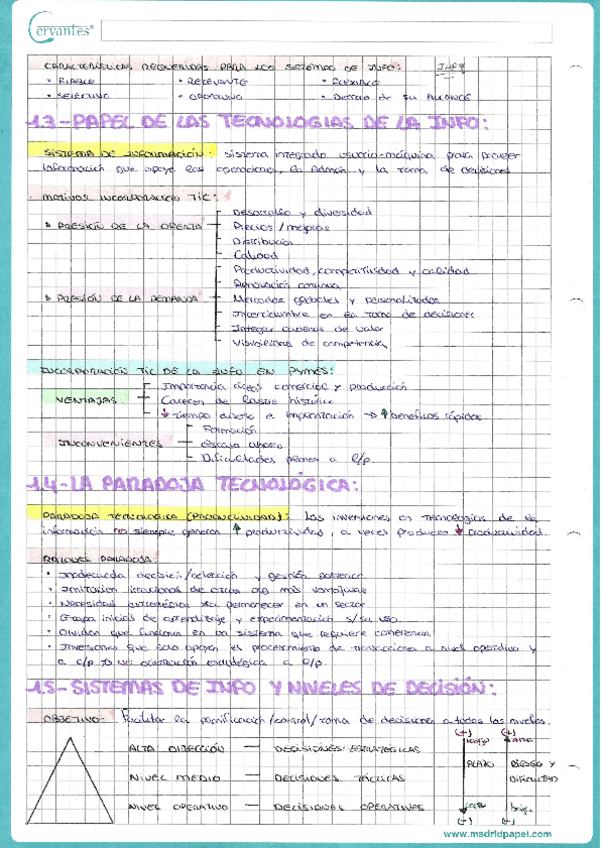 Cervantes
CARACTERÍSTICAS REQUERIDAS PARA LOS SISTEMAS DE INFO:
• FIABLE • RELEVANTE • FLEXIBLE
• SELECTIVO • OPORTUNO • Dentro de su ALCANCE
1.3-PAPEL DE LAS TECNOLOGIAS DE LA INFO:
SISTEMA DE INFORMACIÓN: sistema integrado usuario-máquina para proveer
información que apoye las operaciones, la Admón y la toma de decisiones
MOTIVOS INCORPORACION TIC:
Desarrollo y diversidad
PRESIÓN DE LA OFERTA Precios/mejoras
Distribución
Calidad
Productividad, competitividad y calidad
Renovación continua
PRESIÓN DE LA DEMANDA Mercados globales y personalizados
Incertidumbre en la toma de decisiones
Integrar cadenas de valor
Visibilidad de competencia
INCORPORACIÓN TIC DE LA INFO EN PYMES:
Importancia áreas comercial y producción
VENTAJAS Carecen de lastre histórico
↓ tiempo diseño e implantación → ↑ beneficios rápidos
Formación
INCONVENIENTES Escaso ahorro
Dificultades pensar a l/p
1.4-LA PARADOJA TECNOLÓGICA:
PARADOJA TECNOLOGICA (PRODUCTIVIDAD): Las inversiones en Tecnologías de la
información no siempre generan ↑ productividad, a veces producen ↓ productividad.
RAZONES PARADOJA:
• Inadecuada decisión/selección y gestión posterior
• Imitación irracional de otras org más ventajosas
• Necesidad estratégica xa permanecer en un sector
• Etapa inicial de aprendizaje y experimentación s/su uso
• Olvidan que funciona en un sistema que requiere coherencia
• Inversiones que solo apoyan el procesamiento de transacciones a nivel operativo y
a c/p y no orientación estratégica a l/p.
1.5-SISTEMAS DE INFO Y NIVELES DE DECISIÓN:
OBJETIVO: Facilitar la planificación/control/toma de decisiones a todos los niveles.
(+) (+)
largo alto
ALTA DIRECCIÓN — DECISIONES ESTRATÉGICAS
PLAZO RIESGO Y
NIVEL MEDIO — DECISIONES TÁCTICAS DIFICULTAD
NIVEL OPERATIVO — DECISIONES OPERATIVAS corto bajo
(-) (-)
www.madridpapel.com